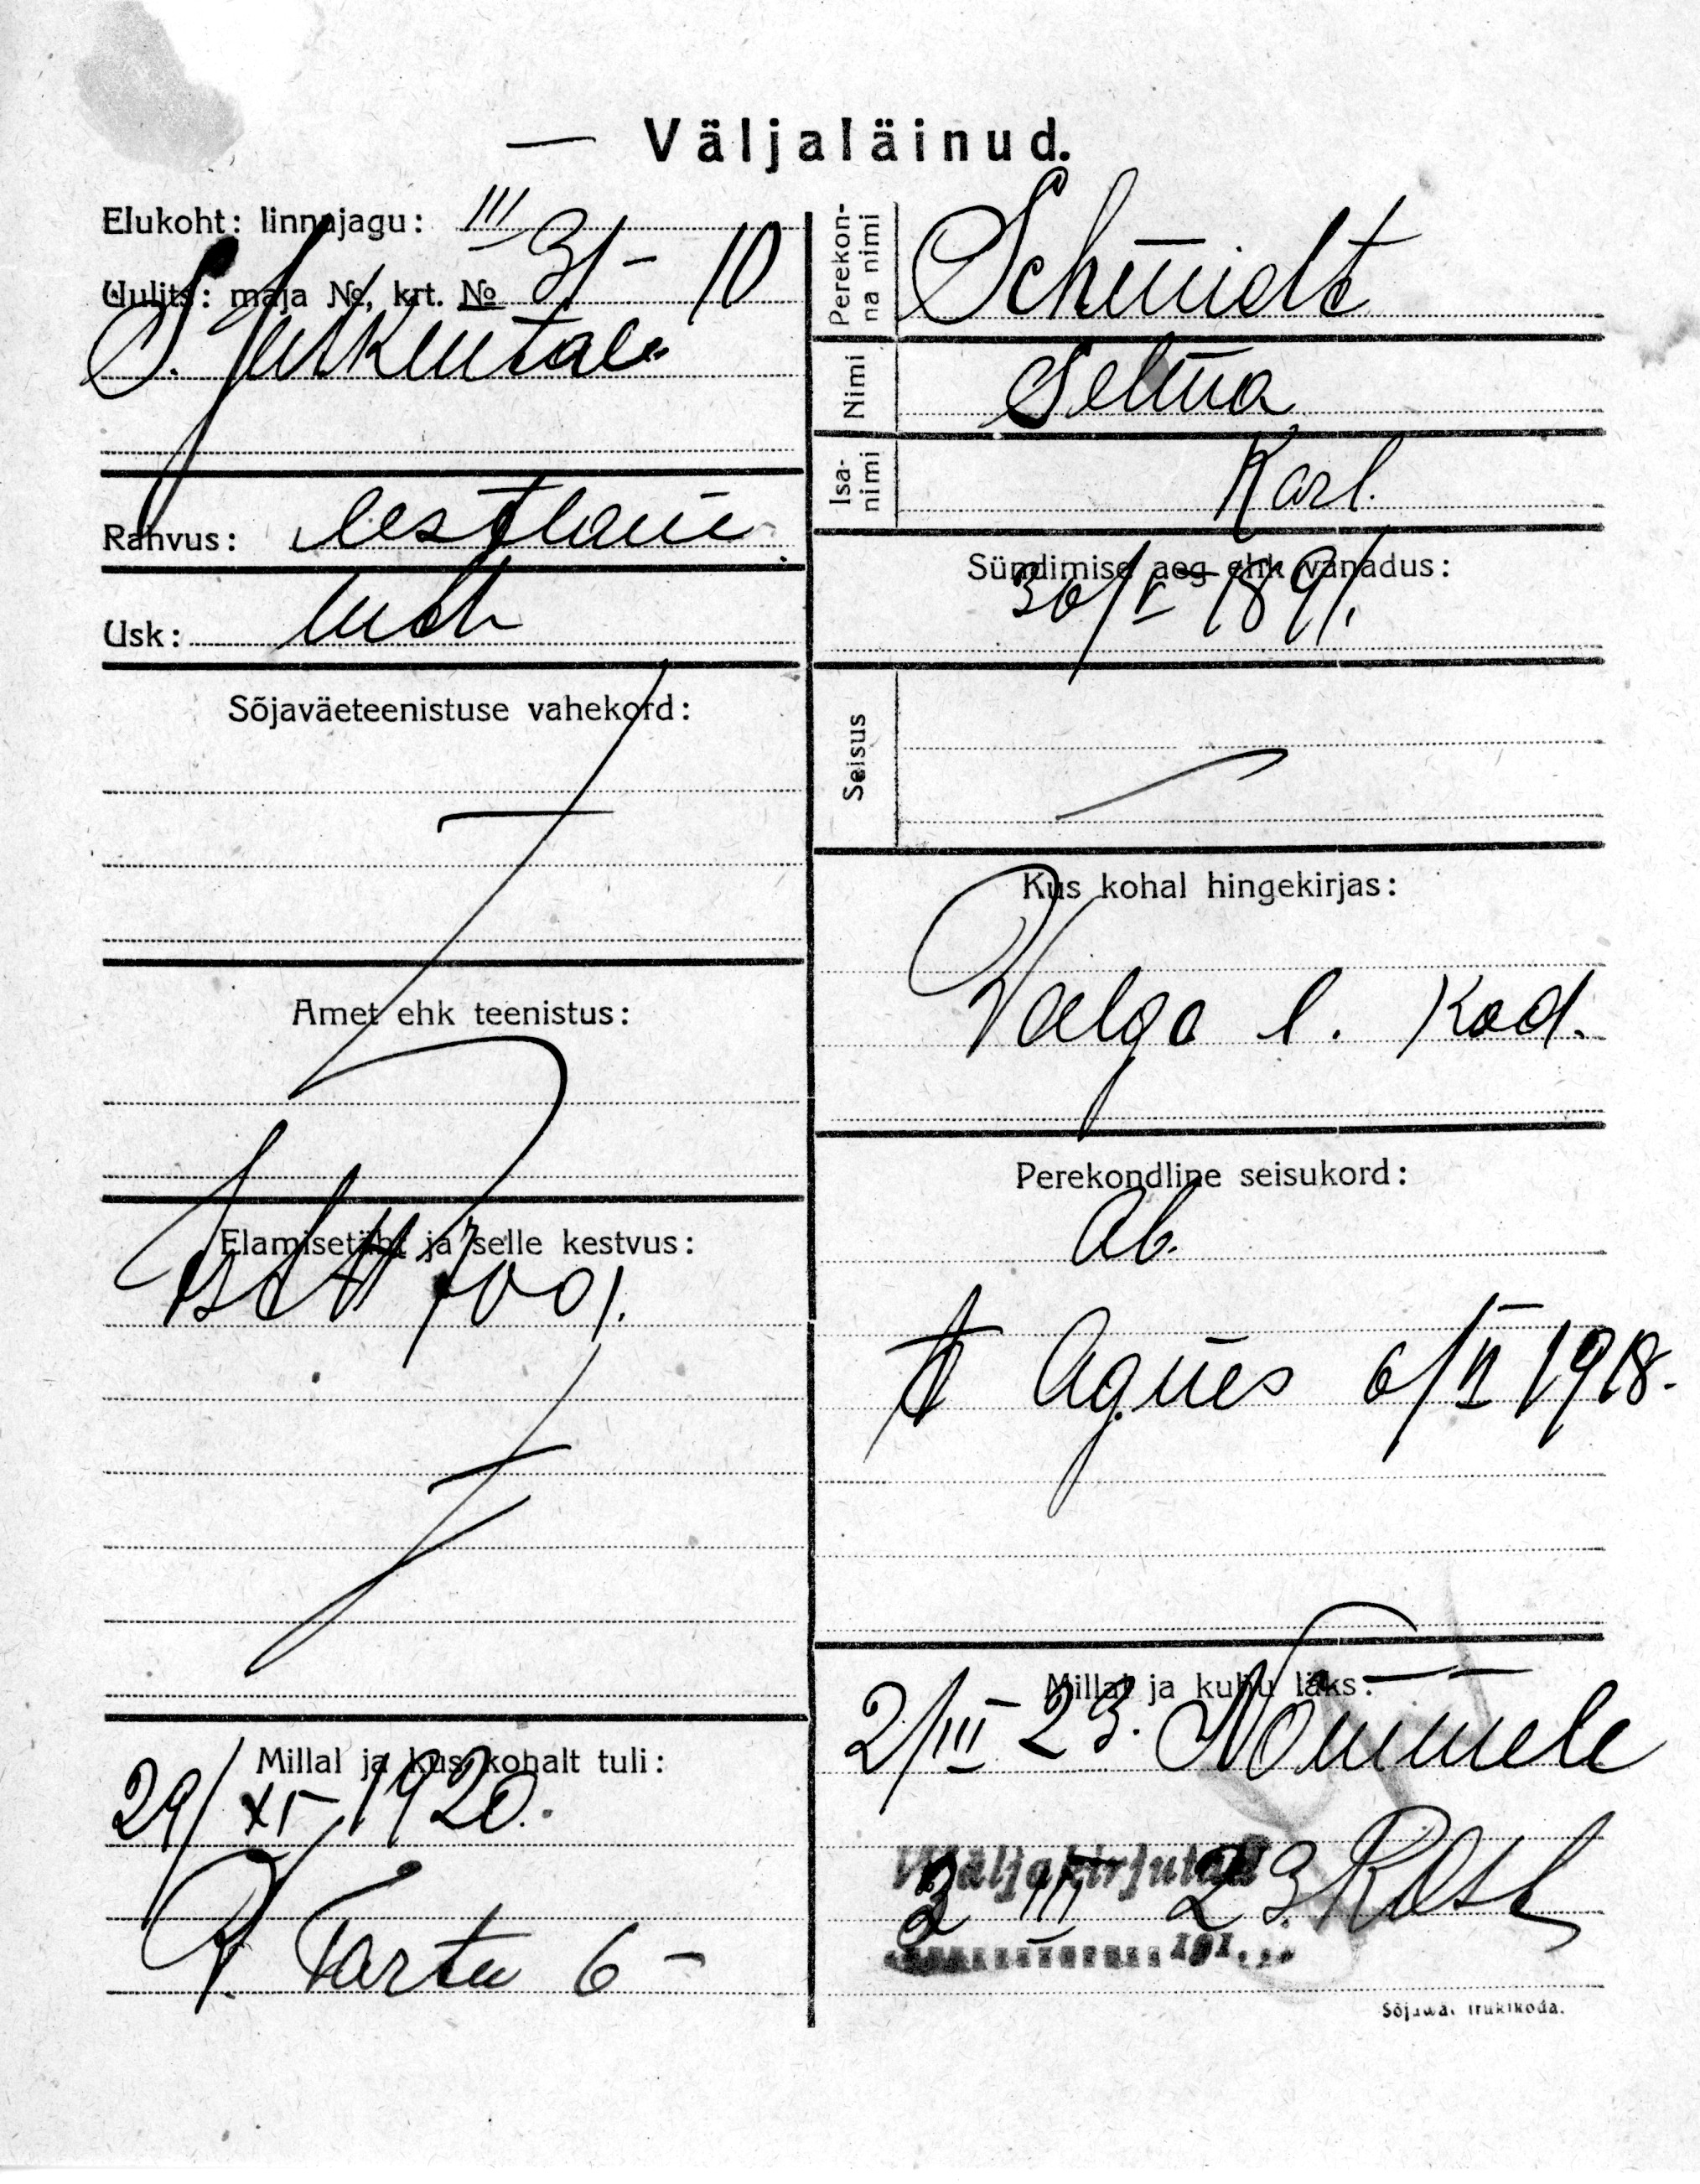 — Väljaläinud.
Elukoht: linnajagu: III
Uulits: maja №, krt. № 31 – 10
S. Juhkentali
Rahvus: eestlane
Usk: luth
Sõjaväeteenistuse vahekord:
Amet ehk teenistus:
Elamisetäht ja selle kestvus:
7001.
Millal ja kus kohalt tuli:
29/XI 1920.
P. Tartu 6 –
Perekonna nimi Schmidt
Nimi Selma
Isanimi Karl.
Sündimise aeg ehk vanadus:
30/V 1891.
Seisus
Kus kohal hingekirjas:
Valga l. kod.
Perekondline seisukord:
Ab.
t Agnes 6/II 1918.
Millal ja kuhu läks:
2/III 23. Nõmmele
Wäljakirjutud
2 III 23
191...
Sõjawäe trükikoda.